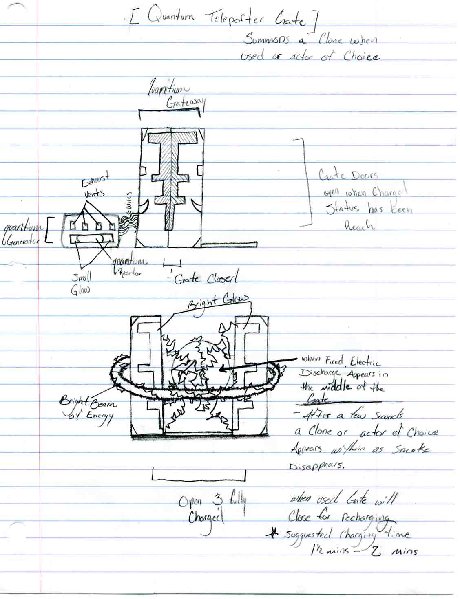 [ Quantum Teleporter Gate ]
Summons a Clone when
used or actor of Choice
Quantum
Gateway
Exhaust
Vents
Quantum
Generator
Small
Glow
Quantum
Reactor
Gate Closed
Gate Doors
open when Charge
Status has been
Reach
Bright Glow
Bright Beam
of Energy
when Fired, Electric
Discharge Appears in
the middle of the
Gate
- After a few Seconds
a Clone or actor of Choice
Appears within as Smoke
Disappears.
Open & fully
Charged
when used Gate will
Close for recharging
* Suggested charging time
1½ mins - 2 mins